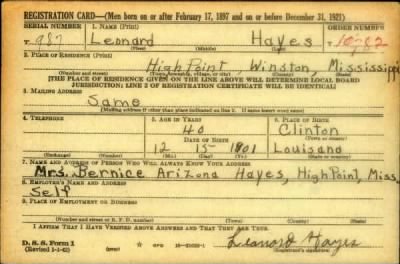 REGISTRATION CARD—(Men born on or after February 17, 1897 and on or before December 31, 1921)
SERIAL NUMBER 1. NAME (Print) ORDER NUMBER
T 987 Leonard Hayes 10782
(First) (Middle) (Last)
2. PLACE OF RESIDENCE (Print)
High Point Winston, Mississippi
(Number and street) (Town, township, village, or city) (County) (State)
[THE PLACE OF RESIDENCE GIVEN ON THE LINE ABOVE WILL DETERMINE LOCAL BOARD
JURISDICTION; LINE 2 OF REGISTRATION CERTIFICATE WILL BE IDENTICAL]
3. MAILING ADDRESS
Same
[Mailing address if other than place indicated on line 2. If same insert word same]
4. TELEPHONE 5. AGE IN YEARS 6. PLACE OF BIRTH
40 Clinton
DATE OF BIRTH (Town or county)
12 15 1901 Louisana
(Exchange) (Number) (Mo.) (Day) (Yr.) (State or country)
7. NAME AND ADDRESS OF PERSON WHO WILL ALWAYS KNOW YOUR ADDRESS
Mrs. Bernice Arizona Hayes, High Point, Miss.
8. EMPLOYER'S NAME AND ADDRESS
Self
9. PLACE OF EMPLOYMENT OR BUSINESS
(Number and street or R. F. D. number) (Town) (County) (State)
I AFFIRM THAT I HAVE VERIFIED ABOVE ANSWERS AND THAT THEY ARE TRUE.
D. S. S. Form 1 GPO Leonard Hayes
(Revised 1-1-42) (over)